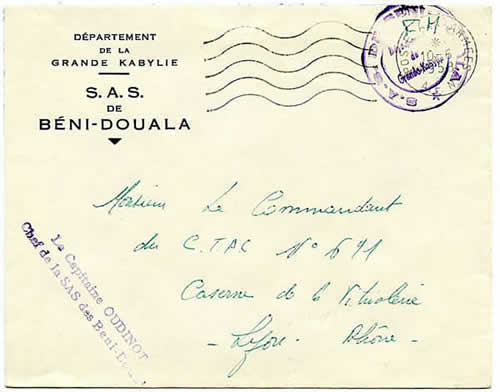 DÉPARTEMENT
DE LA
GRANDE KABYLIE
S.A.S.
DE
BÉNI-DOUALA
F.M
S.A.S DE
Grande-Kabylie
Monsieur Le Commandant
du C.T.A.C N° 691
Caserne de la Vitriolerie
- Lyon - Rhône -
Le Capitaine OUDINOT
Chef de la SAS des Beni-Dou